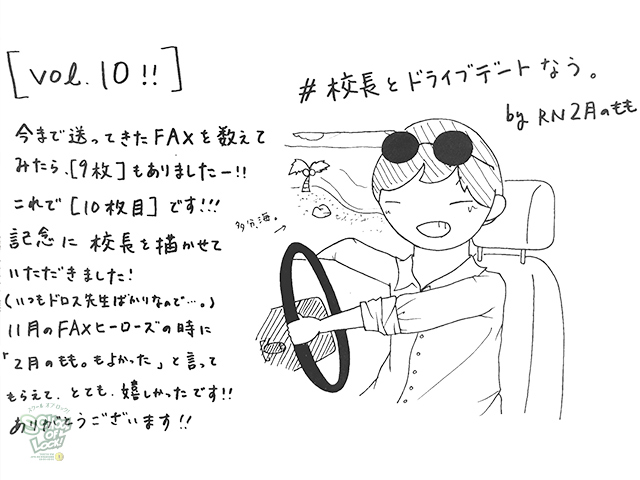 [vol.10!!]
#校長とドライブデートなう。
by RN2月のもも
今まで送ってきたFAXを数えて
みたら、[9枚]もありましたー!!
これで[10枚目]です!!!
記念に校長を描かせて
いただきました!
(いつもドロス先生ばかりなので…。)
11月のFAXヒーローズの時に
「2月のもも。もよかった」と言って
もらえて、とても、嬉しかったです!!
ありがとうございます!!
多分海。
スクールオブロック!
SCHOOL
OF
LOCK!